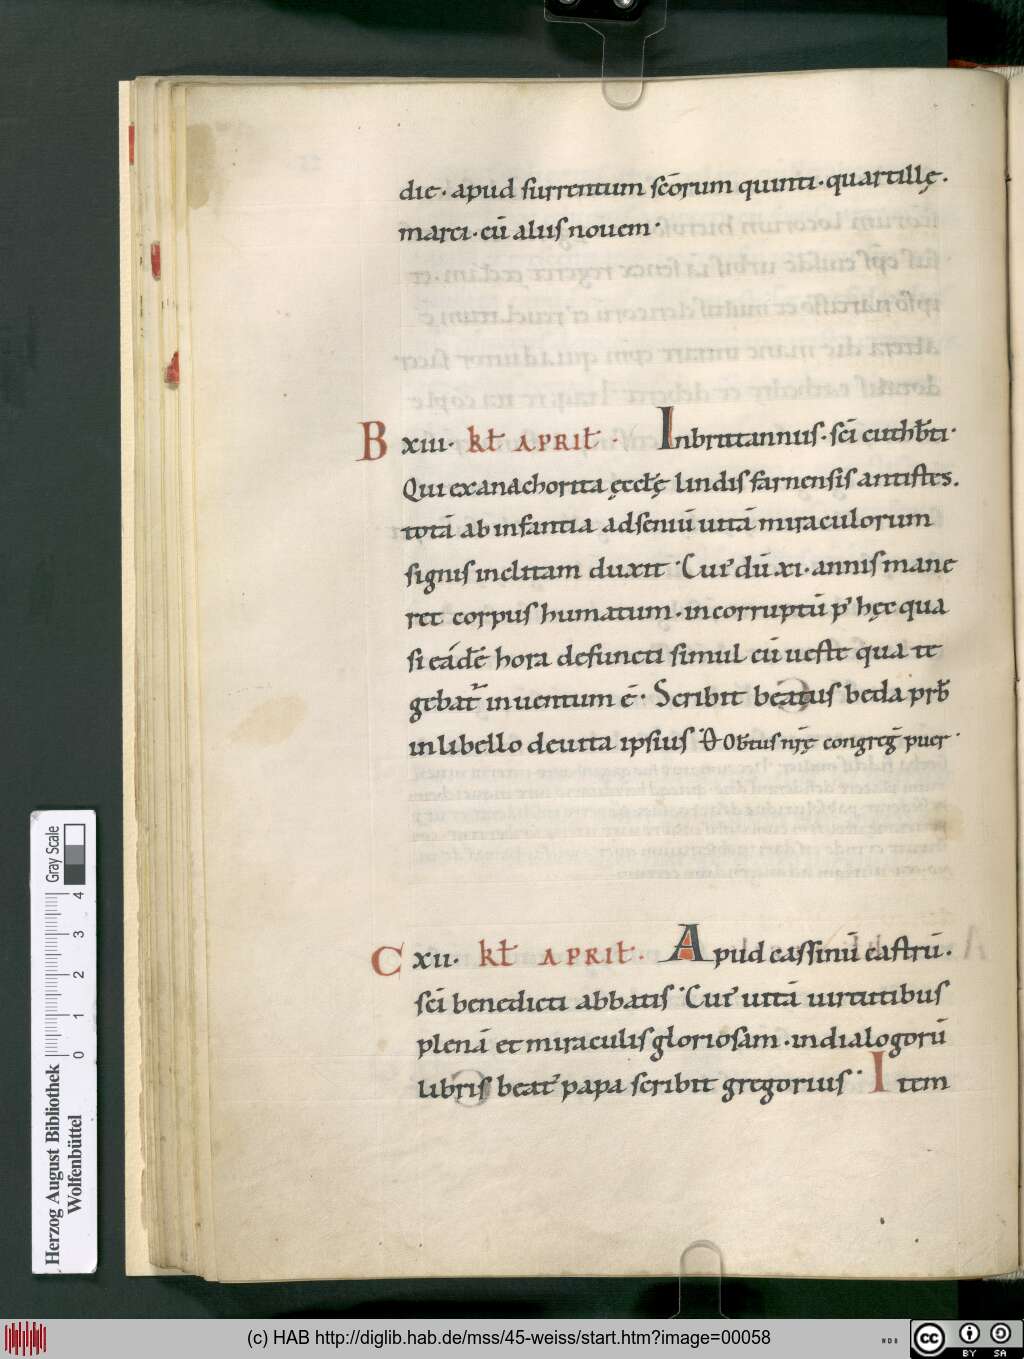 die · apud surrentum scōrum quinti · quartillę ·
marci · cū aliis nouem ·
B xiii · kł APRIł · Inbrittanniis · scī cuthƀti ·
Qui exanachorita ęccłę lindisfarnensis antistes ·
totā ab infantia adseniū uitā miraculorum
signis inclitam duxit · Cui' dū xi · annis mane
ret corpus humatum · incorruptū p' hęc qua
si eādē hora defuncti simul cū ueste qua te
gebat' inuentum ē · Scribit beatus beda prƀ
inlibello deuita ipsius · Obitus nr̄ę congreḡ puer ·
C xii · kł APRIł · Apud cassinū castrū ·
scī benedicti abbatis · Cui' uitā uirtutibus
plenā et miraculis gloriosam · indialogorū
libris beat' papa scribit gregorius · Item
Herzog August Bibliothek
Wolfenbüttel
0 1 2 3 4
Gray Scale
(c) HAB http://diglib.hab.de/mss/45-weiss/start.htm?image=00058
WDB
cc BY SA